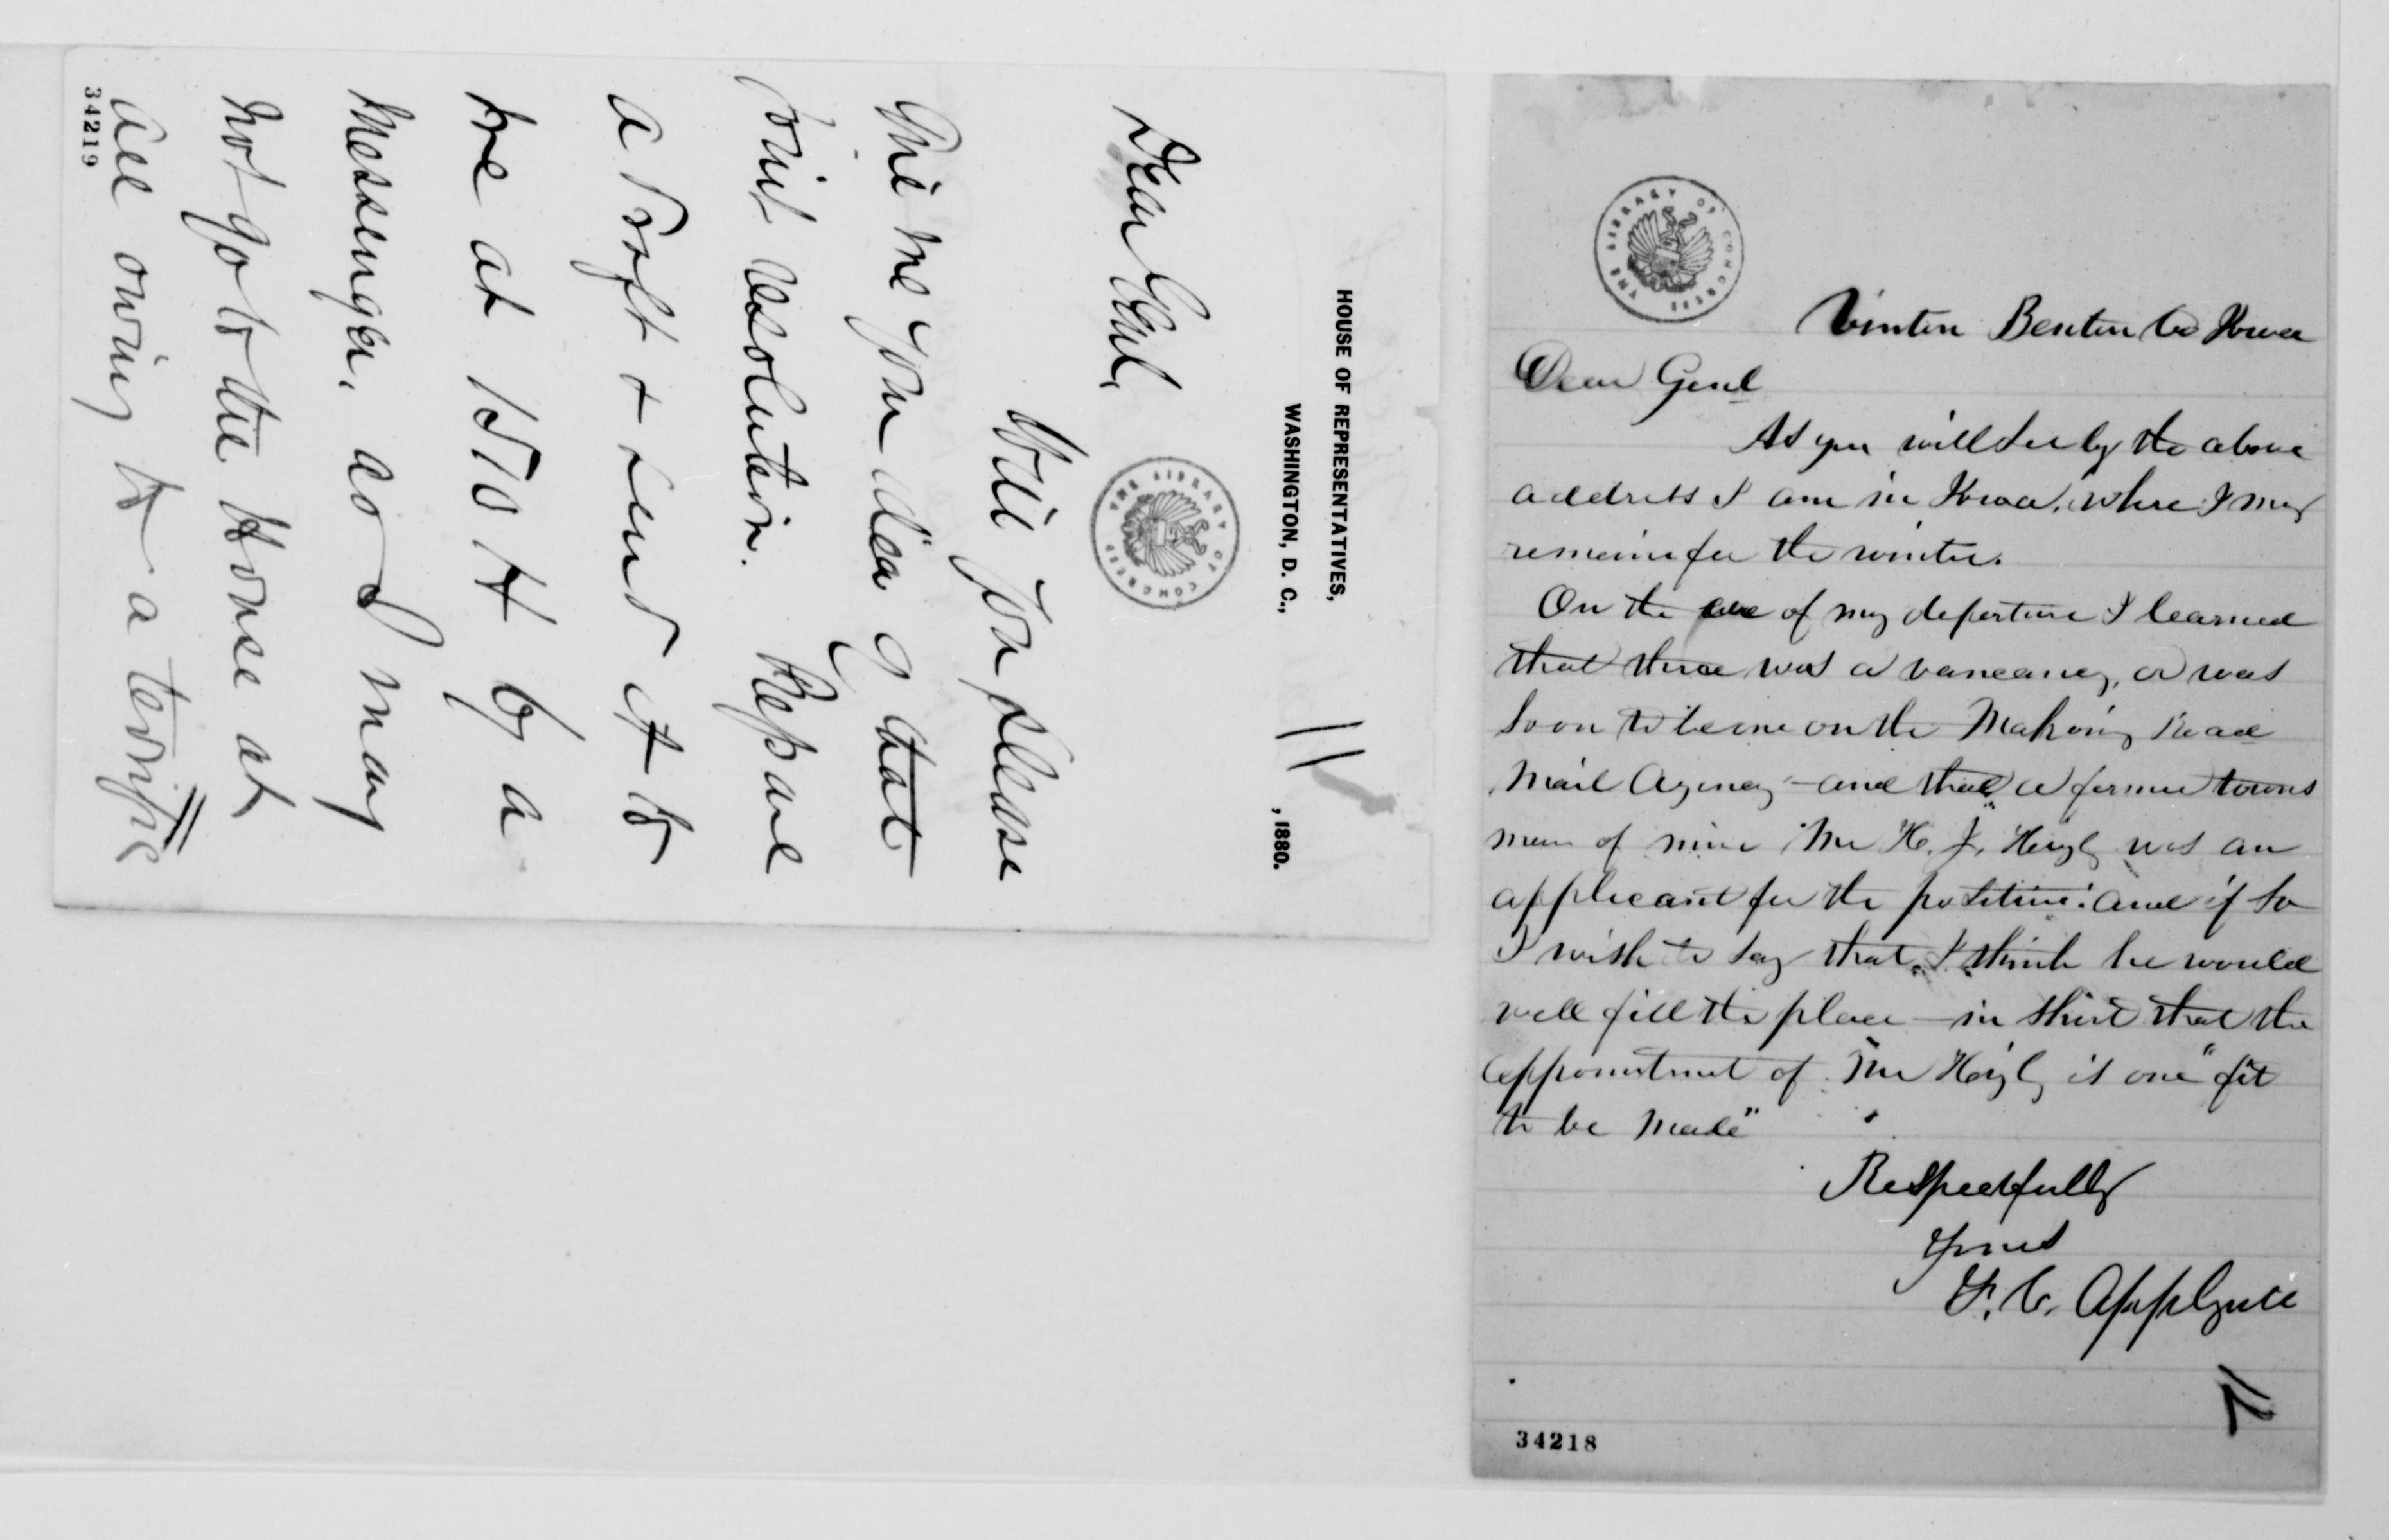 HOUSE OF REPRESENTATIVES,
WASHINGTON, D. C., , 1880.
Dear Genl,
Will you please
give me your idea of that
joint resolution. Prepare
a draft & send it to
me at 1510 H by a
messenger, as I may
not go to the House at
all owing to a terrific
34219
THE LIBRARY OF CONGRESS
THE LIBRARY OF CONGRESS
Vinton Benton Co Iowa
Dear Genl
As you will see by the above
address I am in Iowa, where I may
remain for the winter.
On the eve of my departure I learned
that there was a vancancy, or was
soon to be one on the Mahoning Road
Mail Agency - and that a former towns
man of mine Mr H. J. was an
applicant for the position: and if so
I wish to say that I think he would
well fill the place - in short that the
appointment of Mr is one "fit
to be made"
Respectfully
Yours
Applegate
34218